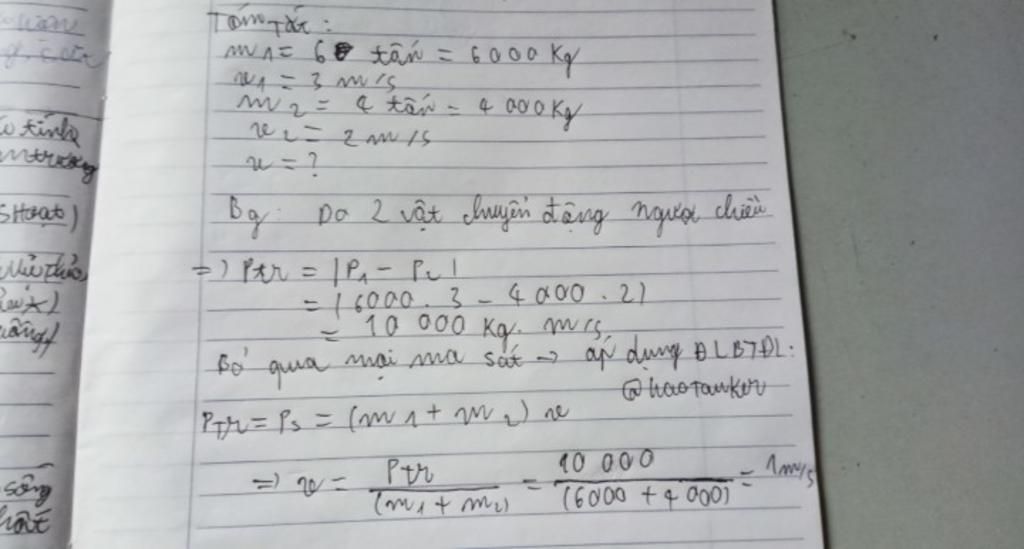 Tóm Tắt:
m1 = 6 tấn = 6000 Kg
v1 = 3 m/s
m2 = 4 tấn = 4 000 Kg
v2 = 2 m/s
v = ?
Bg: Do 2 vật chuyển động ngược chiều
=> Ptr = |P1 - P2|
= |6000 . 3 - 4 000 . 2|
= 10 000 Kg. m/s
Bỏ qua mọi ma sát → áp dụng ĐLBTĐL:
@haotauker
PTr = Ps = (m1 + m2) v
=> v = Ptr / (m1 + m2) = 10 000 / (6000 + 4 000) = 1m/s
tính
trường
sống